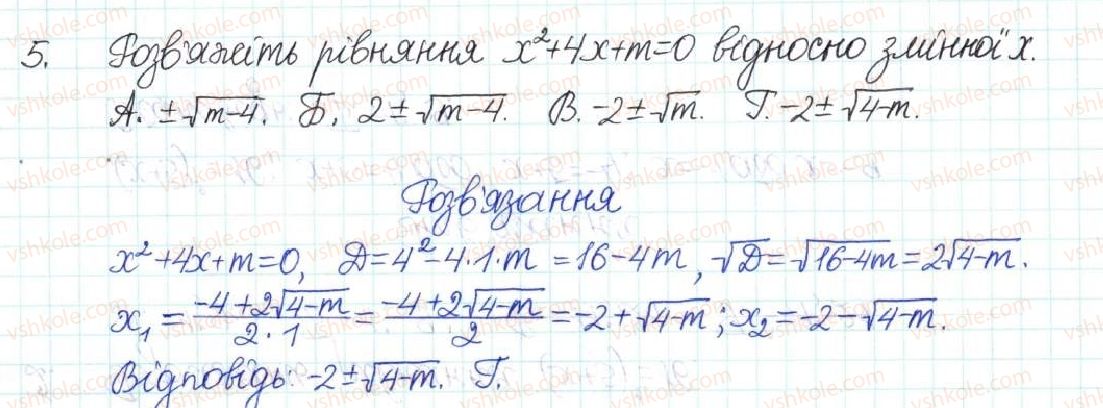 5. Розв'яжіть рівняння x²+4x+m=0 відносно змінної x.
А. ±√(m-4). Б. 2±√(m-4). В. -2±√m. Г. -2±√(4-m).
Розв'язання
x²+4x+m=0, Д=4²-4·1·m =16-4m, √Д=√(16-4m)=2√(4-m).
x₁ = (-4+2√(4-m))/(2·1) = (-4+2√(4-m))/2 = -2+√(4-m); x₂=-2-√(4-m).
Відповідь: -2±√(4-m). Г.